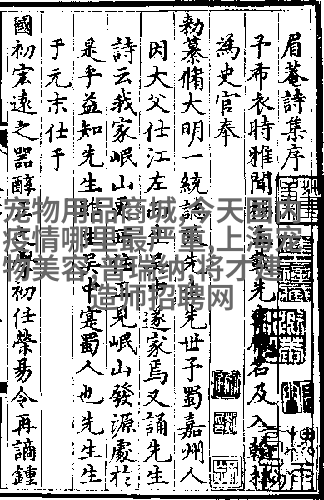 眉菴詩集序
予布衣時雅聞眉菴先名及入翰林
為史官奉
勑纂脩大明一統誌先世予蜀嘉州人
因大父仕江左遂家焉又誦先生
詩云我家岷山更西住正見岷山發源處於
是乎益知先生雖生吳中寔蜀人也先生生
于元末仕于
國初宏遠之器醇之學初任滎易令再謫鍾
宠物用品商城,今天国内
疫情哪里最严重,上海宠
物美容,普瑞纳,将才建
造师招聘网